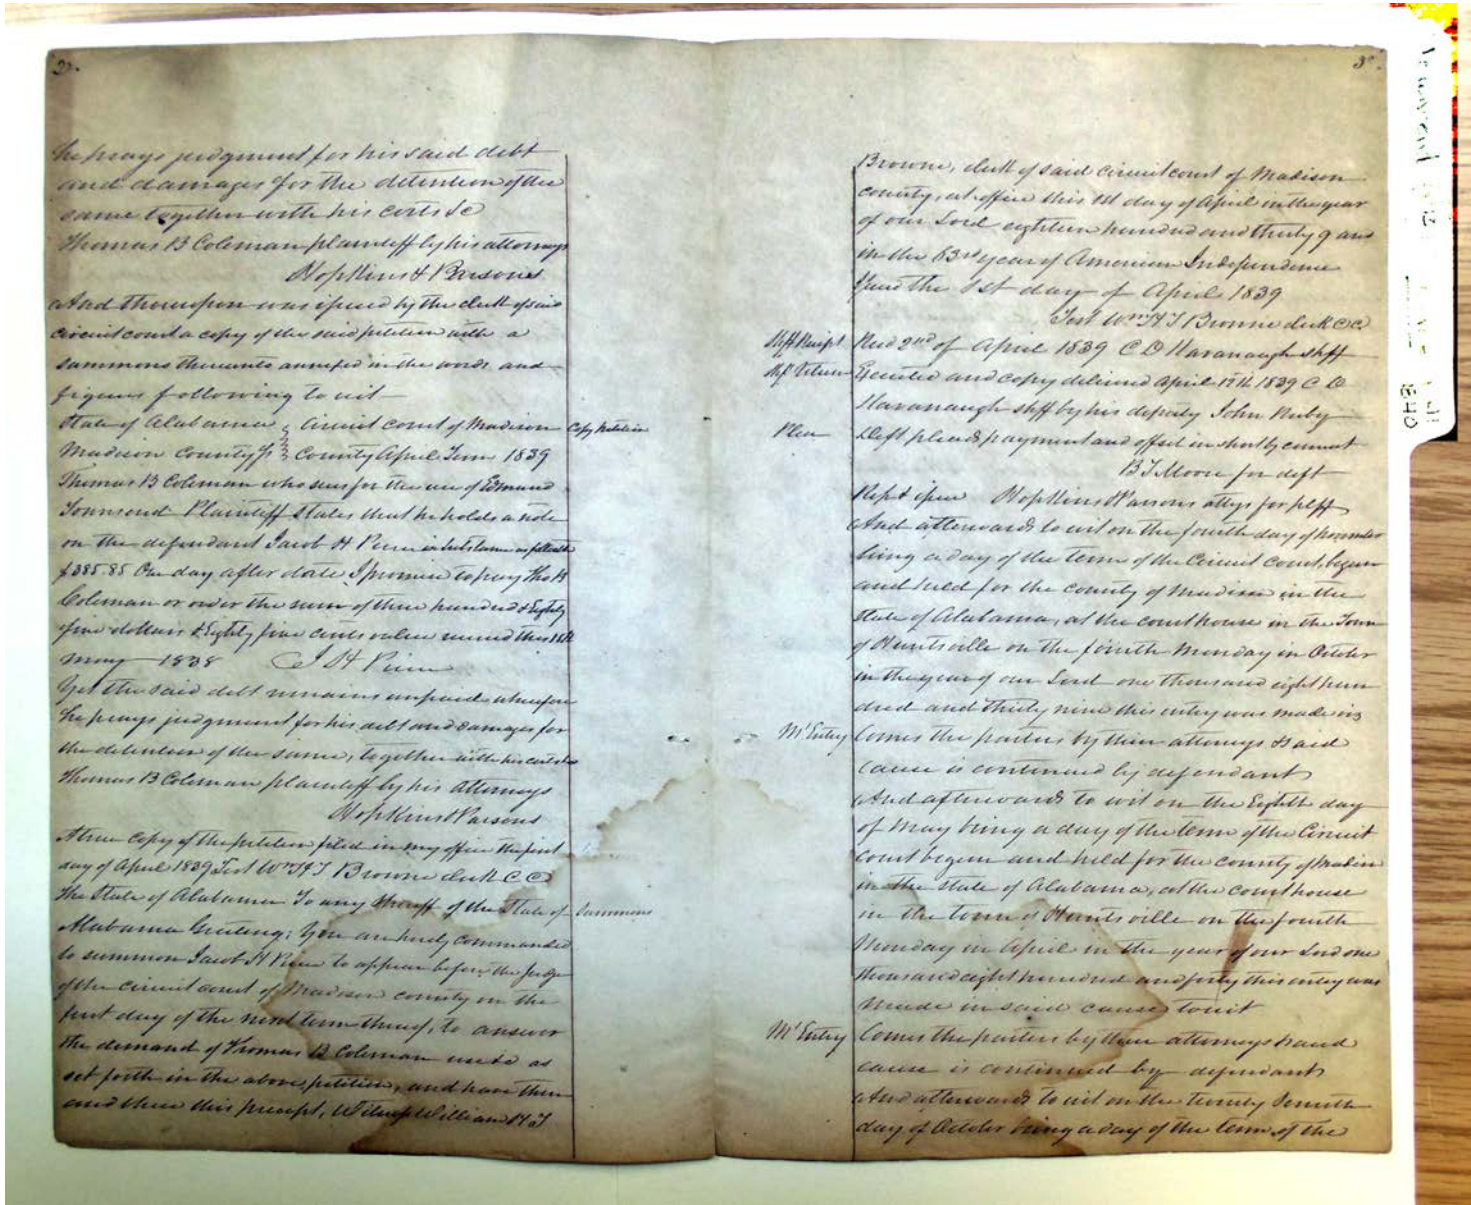 2.
he prays judgment for his said debt
and damages for the detention of the
same together with his costs &c
Thomas B Coleman plaintiff by his attorneys
Hopkins & Parsons
And thereupon was issued by the clerk of said
circuit court a copy of the said petition with a
summons thereunto annexed in the words and
figures following to wit
State of Alabama Circuit court of Madison
Copy Petition
Madison County County April Term 1839
Thomas B Coleman who sues for the use of Edmund
Townsend Plaintiff States that he holds a note
on the defendant Jacob H Pierce in substance as follows
$385.85 One day after date I promise to pay Tho B
Coleman or order the sum of three hundred & Eighty
five dollars & Eighty five cents value received this 18th
may 1838 J H Pierce
Yet the said debt remains unpaid wherefore
he prays judgment for his debt and damages for
the detention of the same, together with his costs &c
Thomas B Coleman plaintiff by his attorneys
Hopkins & Parsons
A true copy of the petition filed in my office the first
day of April 1839 Test Wm H J Browne clerk C C
The State of Alabama To any Sheriff of the State of
Summons
Alabama Greeting; You are hereby commanded
to summon Jacob H Pierce to appear before the Judge
of the circuit court of Madison county on the
first day of the next term thereof, to answer
the demand of Thomas B Coleman use &c as
set forth in the above petition, and have then
and there this precept, Witness William H J
3.
Browne, clerk of said circuit court of Madison
county, at office this 1st day of April in the year
of our Lord eighteen hundred and thirty 9 and
in the 63rd year of American Independence
Issued the 1st day of April 1839
Test Wm H J Browne clerk C C
Shff Receipt
Recd 2nd of April 1839 C D Kavanaugh shff
Shff Return
Executed and copy delivered April 17th 1839 C D
Kavanaugh shff by his deputy John Ruby
Plea
Deft pleads payment and offset in short by consent
B T Moore for deft
Rep & issue Hopkins & Parsons attys for plff
And afterwards to wit on the fourth day of November
being a day of the term of the Circuit Court, begun
and held for the county of Madison in the
State of Alabama, at the court house in the Town
of Huntsville on the fourth Monday in October
in the year of our Lord one thousand eight hun
dred and thirty nine this entry was made viz
Mt Entry
Comes the parties by their attorneys & said
cause is continued by defendant
And afterwards to wit on the Eighth day
of May being a day of the term of the Circuit
Court begun and held for the county of Madison
in the state of Alabama, at the court house
in the town of Huntsville on the fourth
Monday in April in the year of our Lord one
thousand eight hundred and forty this entry was
made in said cause, to wit
Mt Entry
Comes the parties by their attorneys & said
cause is continued by defendant
And afterwards to wit on the twenty Seventh
day of October being a day of the term of the